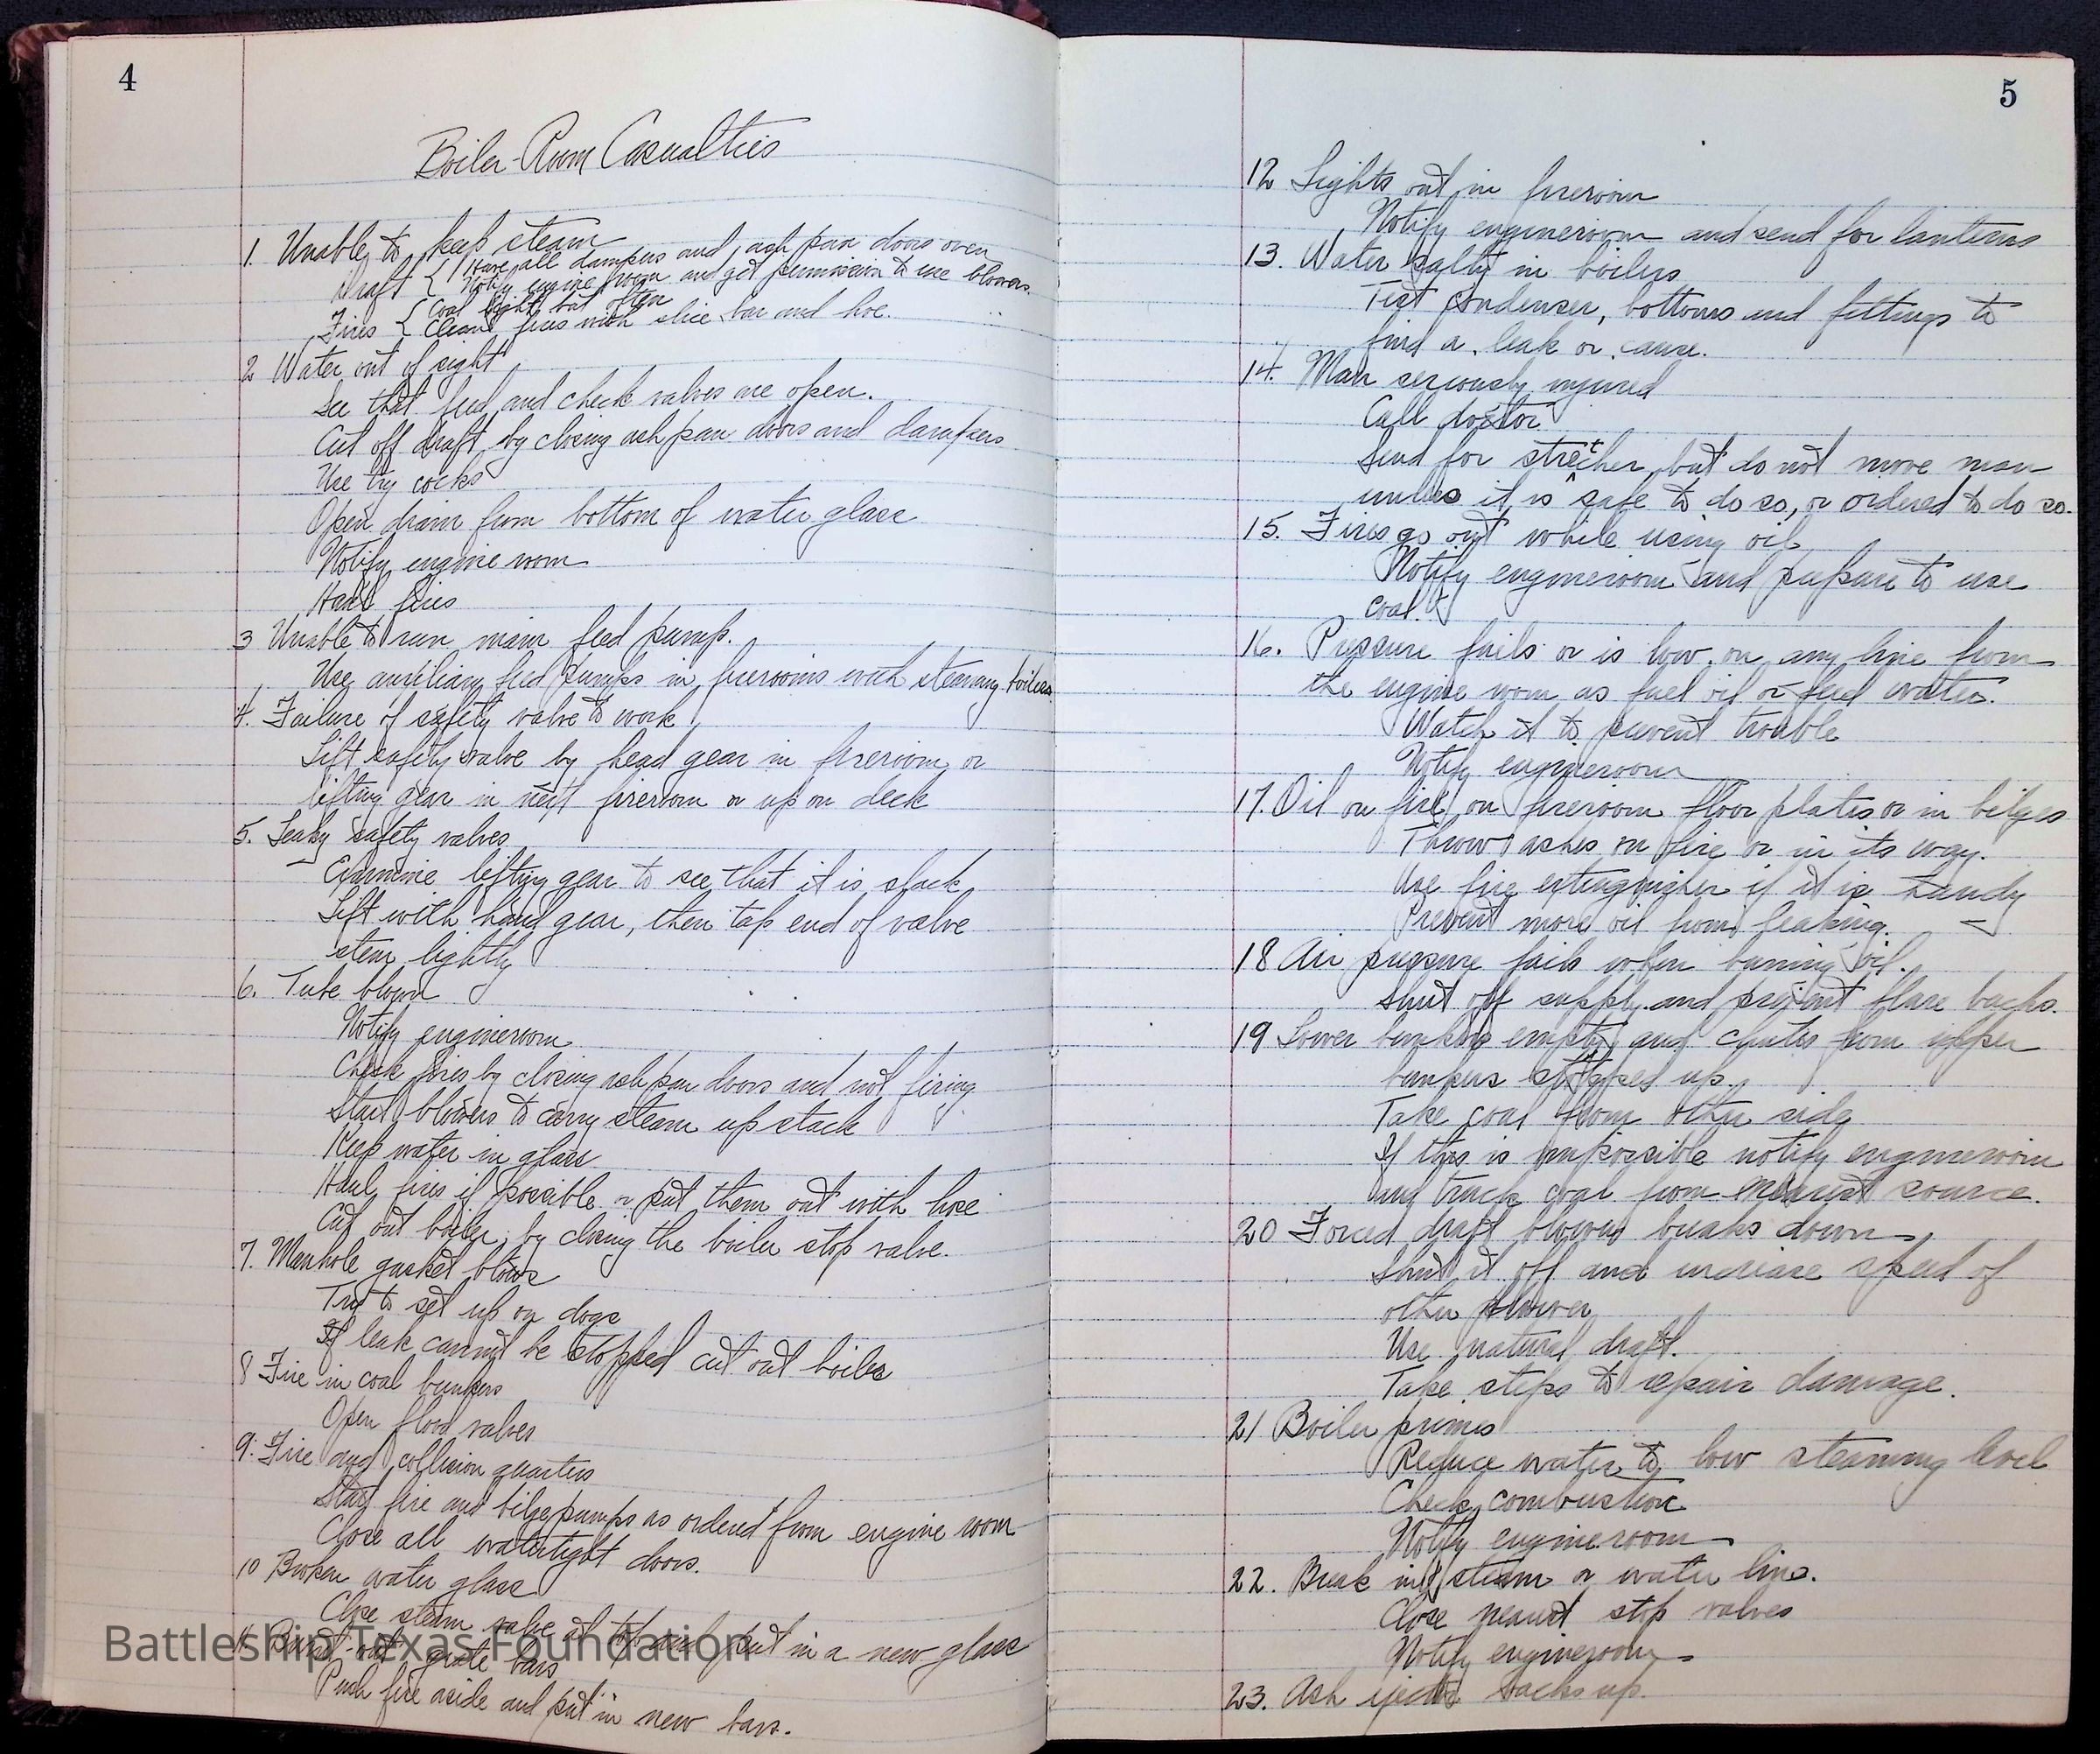 4
Boiler-Room Casualties
1. Unable to keep steam
Draft { Have all dampers and ash pan doors open
Notify engine room and get permission to use blowers.
Fires { Coal light but often
Clean fires with slice bar and hoe.
2 Water out of sight
See that feed and check valves are open.
Cut off draft by closing ash pan doors and dampers
Use try cocks
Open drain from bottom of water glass
Notify engine room
Haul fires
3 Unable to run main feed pump.
Use auxiliary feed pumps in firerooms with steaming boilers.
4. Failure of safety valve to work
Lift safety valve by hand gear in fireroom or
lifting gear in next fireroom or up on deck
5. Leaky safety valves
Examine lifting gear to see that it is slack
Lift with hand gear, then tap end of valve
stem lightly
6. Tube blown
Notify engineroom
Check fires by closing ash pan doors and not firing
Start blowers to carry steam up stack
Keep water in glass
Haul fires if possible or put them out with hose
Cut out boiler, by closing the boiler stop valve.
7. Manhole gasket blows
Try to set up on dogs
If leak cannot be stopped cut out boiler
8 Fire in coal bunkers
Open flood valves
9. Fire and collision quarters
Start fire and bilge pumps as ordered from engine room
Close all watertight doors.
10 Broken water glass
Close steam valve at top and put in a new glass
11. Burnt-out grate bars
Push fire aside and put in new bars.
Battleship Texas Foundation
5
12 Lights out in fireroom
Notify engineroom and send for lanterns
13. Water salty in boilers
Test condenser, bottoms and fittings to
find a leak or cause.
14. Man seriously injured
Call doctor
Send for stretcher, but do not move man
unless it is safe to do so, or ordered to do so.
15. Fires go out while using oil
Notify engineroom and prepare to use
coal.
16. Pressure fails or is low on any line from
the engine room as fuel oil or feed water.
Watch it to prevent trouble
Notify engineroom
17. Oil on fire on fireroom floor plates or in bilges
Throw ashes on fire or in its way.
Use fire extinguisher if it is handy
Prevent more oil from leaking.
18 Air pressure fails when burning oil.
Shut off supply and prevent flare backs.
19 Lower bunkers empty and chutes from upper
bunkers stopped up.
Take coal from other side
If this is impossible notify engineroom
and truck coal from nearest source.
20 Forced draft blower breaks down
Shut it off and increase speed of
other blower
Use natural draft.
Take steps to repair damage.
21 Boiler primes
Reduce water to low steaming level
Check combustion
Notify engineroom
22. Break in steam or water line.
Close nearest stop valves
Notify engineroom
23. Ash ejector backs up.